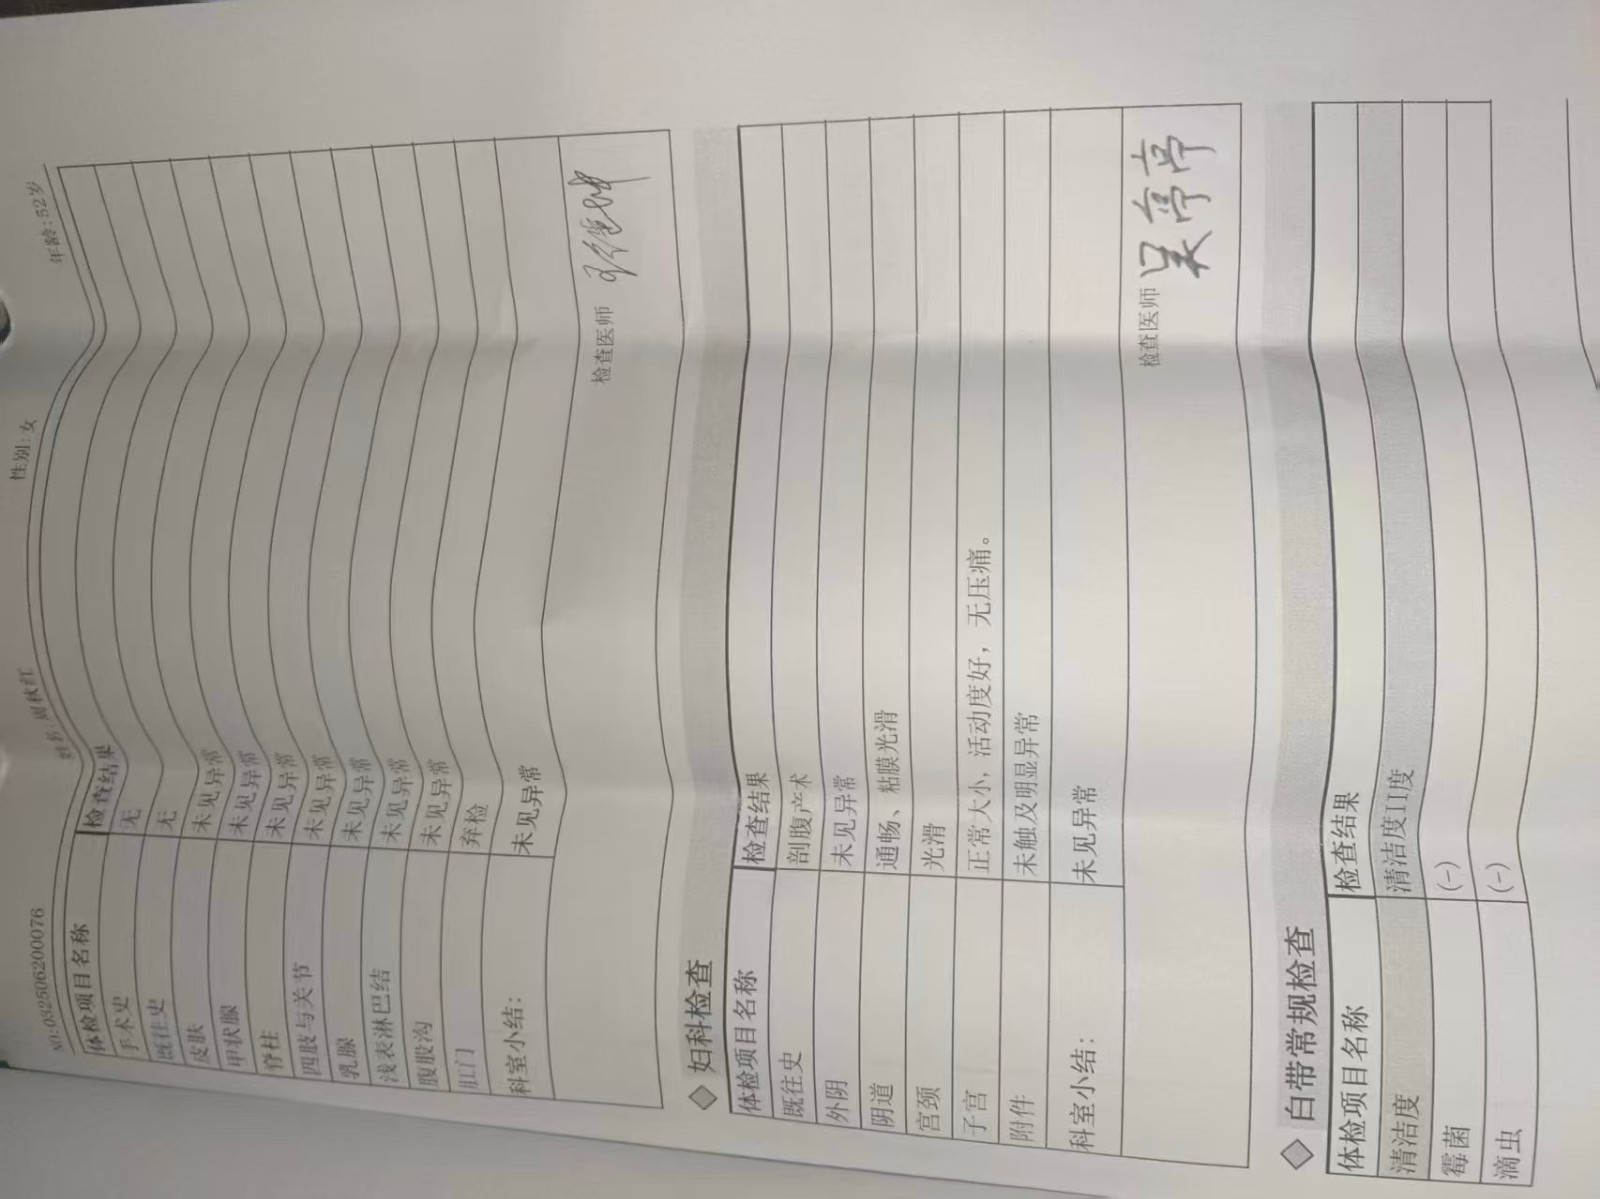 NO:032506200076 姓名:周秋红 性别:女 年龄:52岁
体检项目名称 检查结果
手术史 无
既往史 无
皮肤 未见异常
甲状腺 未见异常
脊柱 未见异常
四肢与关节 未见异常
乳腺 未见异常
浅表淋巴结 未见异常
腹股沟 未见异常
肛门 弃检
科室小结: 未见异常
检查医师
◆ 妇科检查
体检项目名称 检查结果
既往史 剖腹产术
外阴 未见异常
阴道 通畅、粘膜光滑
宫颈 光滑
子宫 正常大小,活动度好,无压痛。
附件 未触及明显异常
科室小结: 未见异常
检查医师 吴亭亭
◆ 白带常规检查
体检项目名称 检查结果
清洁度 清洁度II度
霉菌 (-)
滴虫 (-)